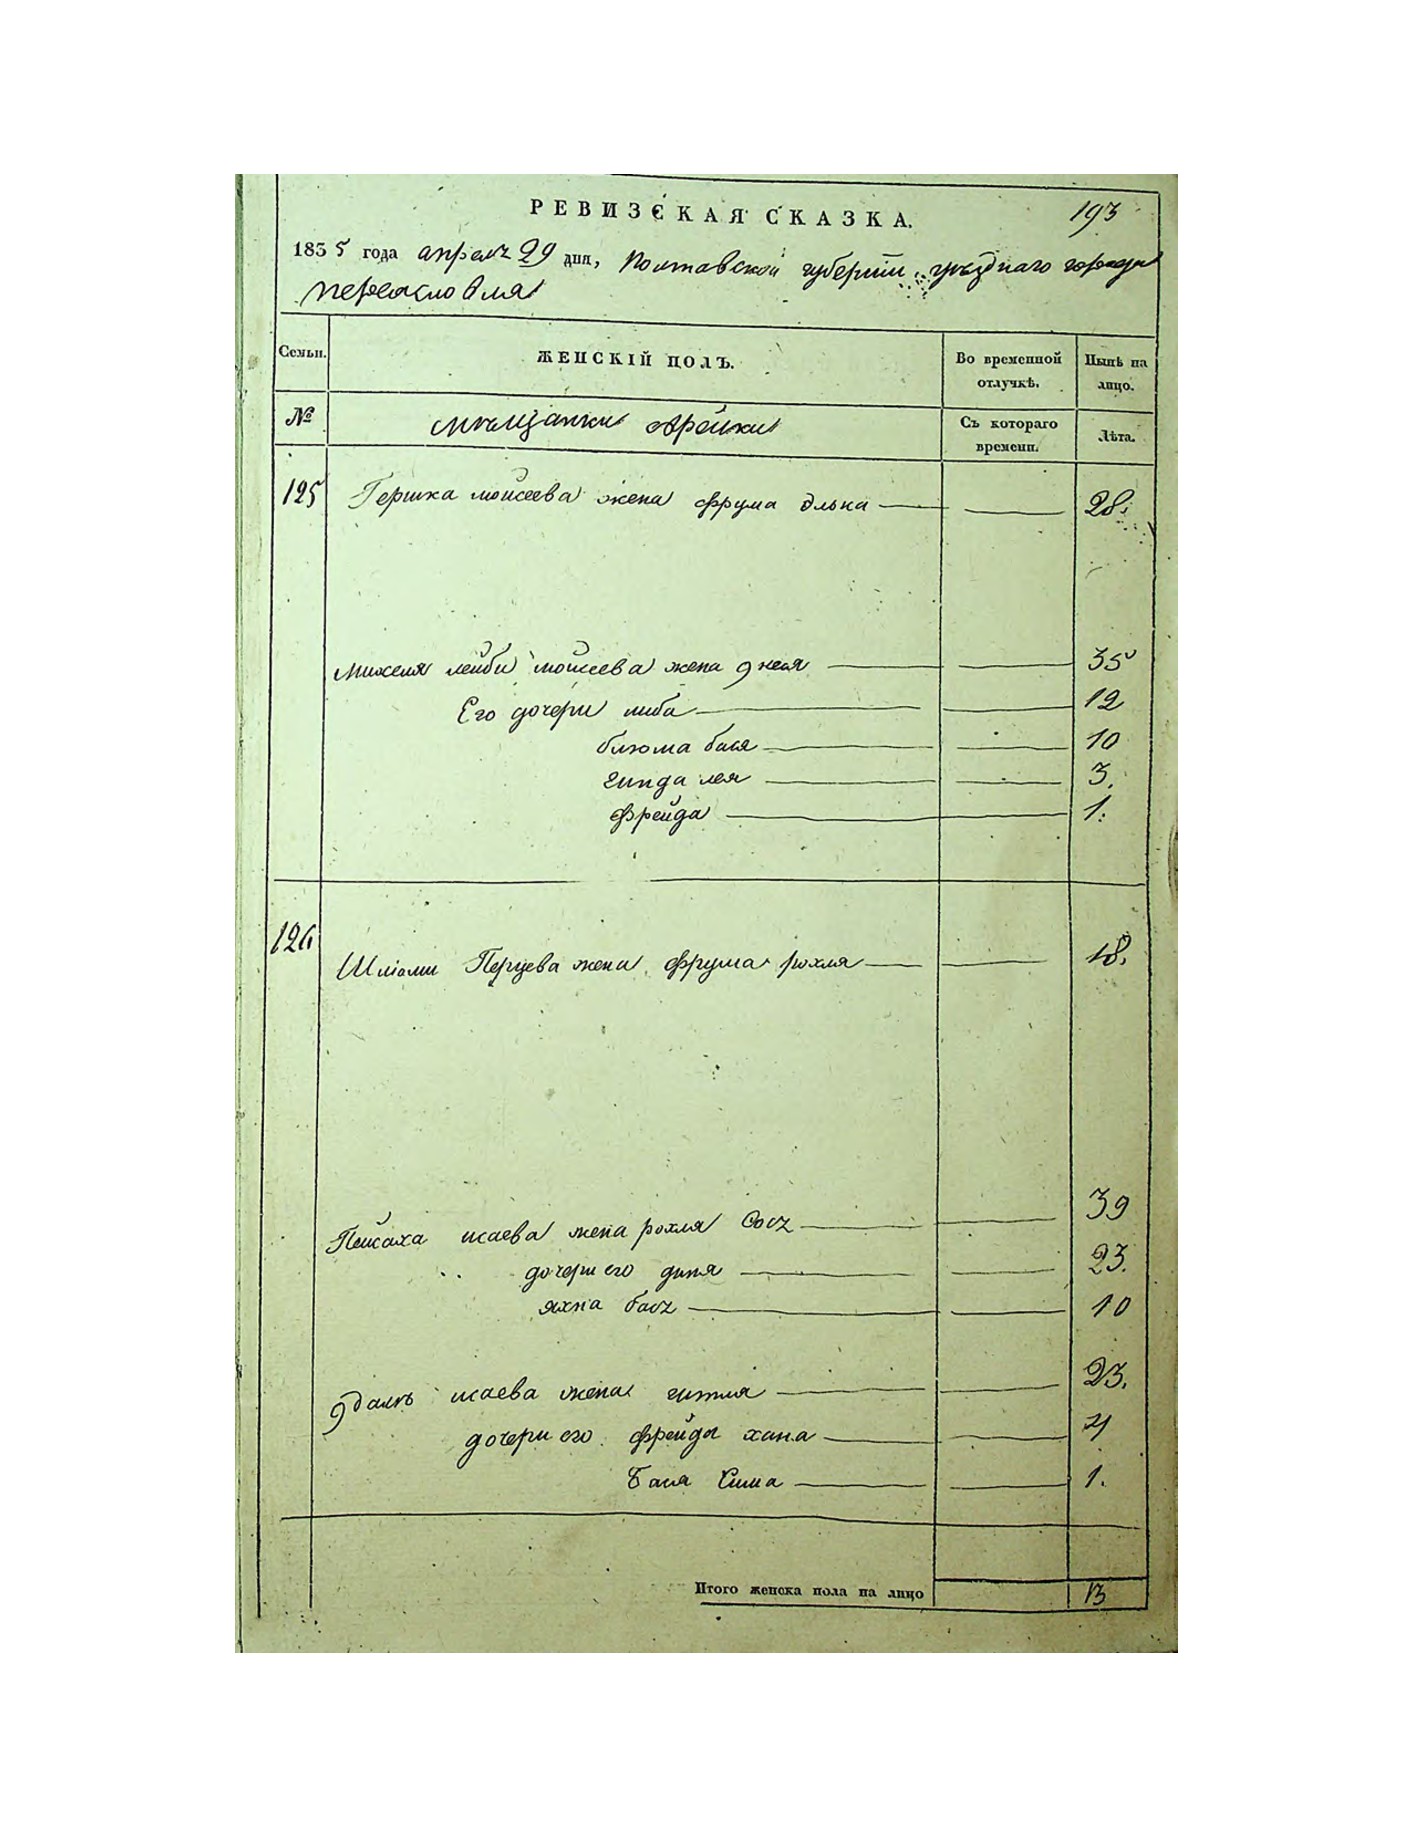 РЕВИЗСКАЯ СКАЗКА.
193
1835 года апреля 29 дня, Полтавской губернiи, уѣзднаго города
Переяславля
Семьи.
ЖЕНСКІЙ ПОЛЪ.
Во временной отлучкѣ.
Нынѣ на лицо.
№
мѣщанки еврейки
Съ котораго времени.
Лѣта.
125 Гершка мойсеева жена фрума элька 28.
Михеля лейби мойсеева жена 35
Его дочери либа 12
блюма бася 10
гинда лея 3.
фрейда 1.
126 Шлiоми Перцева жена фрума рохля 18.
Пейсаха исаева жена рохля сося 39
дочери его диня 23.
яхна бася 10
исаева жена гитля 23.
дочери его фрейда хана 4
Бася Сима 1.
Итого женска пола на лицо 13